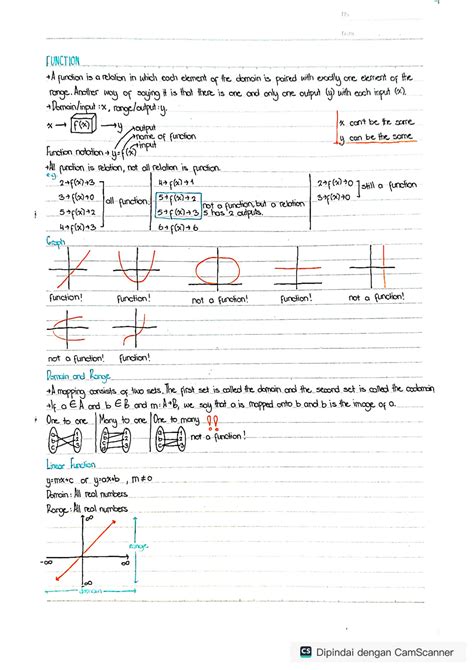 No.
Date.
FUNCTION
→A function is a relation in which each element of the domain is paired with exactly one element of the
range. Another way of saying it is that there is one and only one output (y) with each input (x).
→Domain/input : x, range/output : y.
x → f(x) → y
x can't be the same
y can be the same
output
name of function
input
Function notation → y = f(x)
→All function is relation, not all relation is function.
eg
2→f(x)→3
3→f(x)→0
5→f(x)→2
4→f(x)→3
all function
4→f(x)→1
5→f(x)→2
5→f(x)→3
6→f(x)→6
not a function, but a relation
5 has 2 outputs.
2→f(x)→0
3→f(x)→0
still a function
Graph
function! function! not a function! function! not a function!
not a function! function!
Domain and Range
→A mapping consists of two sets. The first set is called the domain and the second set is called the codomain
→If a ∈ A and b ∈ B and m: A→B, we say that a is mapped onto b and b is the image of a.
One to one Many to one One to many !!
a b c 1 2 3
a b c 1 2 3
a b c 1 2 3
not a function!
Linear Function
y=mx+c or y=ax+b, m≠0
Domain : All real numbers
Range : All real numbers
∞
range
-∞ ∞
∞
domain
CS Dipindai dengan CamScanner